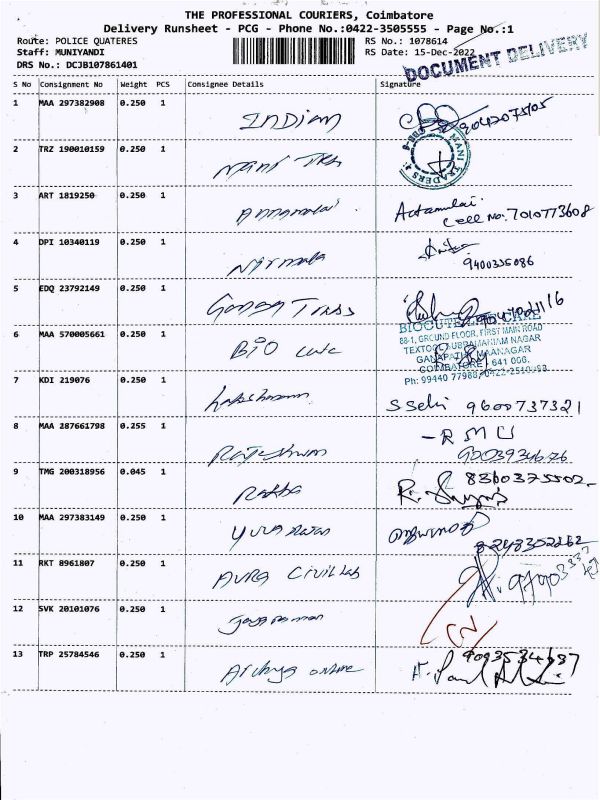 THE PROFESSIONAL COURIERS, Coimbatore
Delivery Runsheet - PCG - Phone No.:0422-3505555 - Page No.:1
Route: POLICE QUATERES RS No.: 1078614
Staff: MUNIYANDI RS Date: 15-Dec-2022
DRS No.: DCJB107861401
DOCUMENT DELIVERY
S No Consignment No Weight PCS Consignee Details Signature
1 MAA 297382908 0.250 1 INDIAN
2 TRZ 190010159 0.250 1 Mani Trs
MANI TRADERS
3 ART 1819250 0.250 1 Annamalai
Cell No: 7010773608
4 DPI 10340119 0.250 1 Nirmala
9400335086
5 EDQ 23792149 0.250 1
6 MAA 570005661 0.250 1 BiO cute
BIOCUTE CARE
88-1, GROUND FLOOR, FIRST MAIN ROAD
TEXTOOL SUBRAMANIAM NAGAR
GANAPATHY MAANAGAR
COIMBATORE 641 006.
Ph: 99440 77988,
7 KDI 219076 0.250 1 Lakshmanan
S Selvi 9600737321
8 MAA 287661798 0.255 1 Rajeshwari
- R M U
9003934676
9 TMG 200318956 0.045 1
8360375502
10 MAA 297383149 0.250 1 Yuvarajan
8248352262
11 RKT 8961807 0.250 1 AVRA Civil Lab
12 SVK 20101076 0.250 1 Jayaraman
13 TRP 25784546 0.250 1 online
9093534687